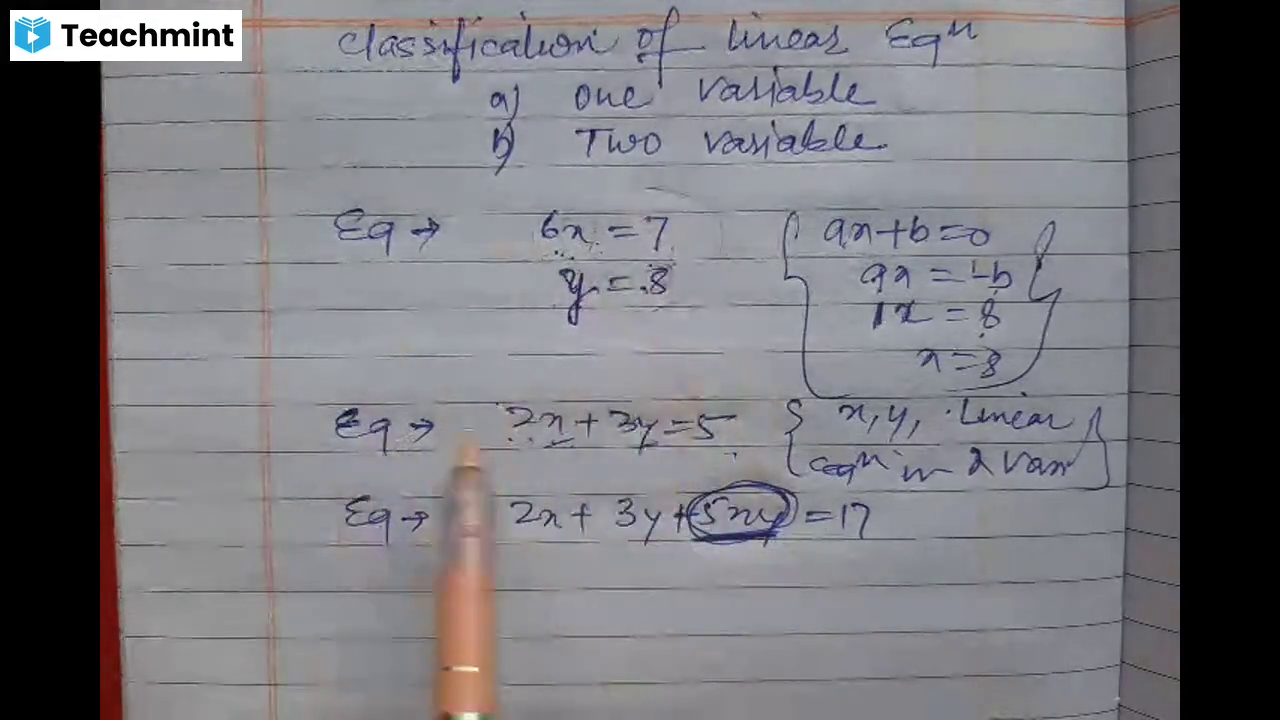 Teachmint
Classification of linear Eqn
a) One variable
b) Two variable.
Eq → 6x = 7
y = 8
ax+b=0
ax = -b
1x = 8
x = 8
Eq → 2x + 3y = 5
x, y, Linear
eqn in 2 var
Eq → 2x + 3y + 5xy = 17